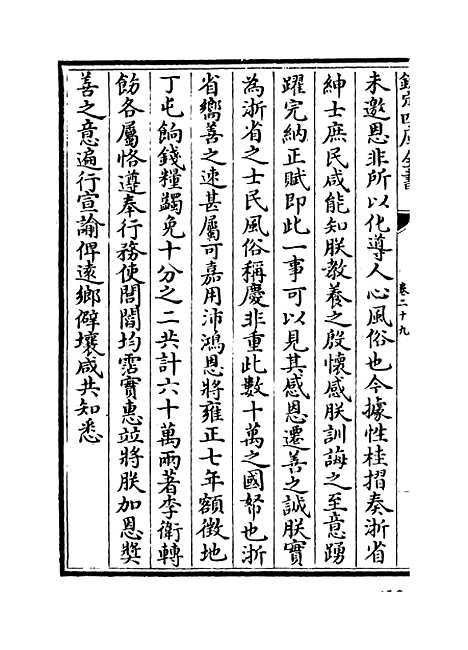 欽定四庫全書
卷二十九
未邀恩非所以化導人心風俗也今據性桂摺奏浙省
紳士庶民咸能知朕教養之殷懷感朕訓誨之至意踴
躍完納正賦即此一事可以見其感恩遷善之誠朕實
為浙省之士民風俗稱慶非重此數十萬之國帑也浙
省嚮善之速甚屬可嘉用沛鴻恩將雍正七年額徵地
丁屯餉錢糧蠲免十分之二共計六十萬兩著李衛轉
飭各屬恪遵奉行務使閭閻均霑實惠竝將朕加恩奬
善之意遍行宣諭俾遠鄉僻壤咸共知悉